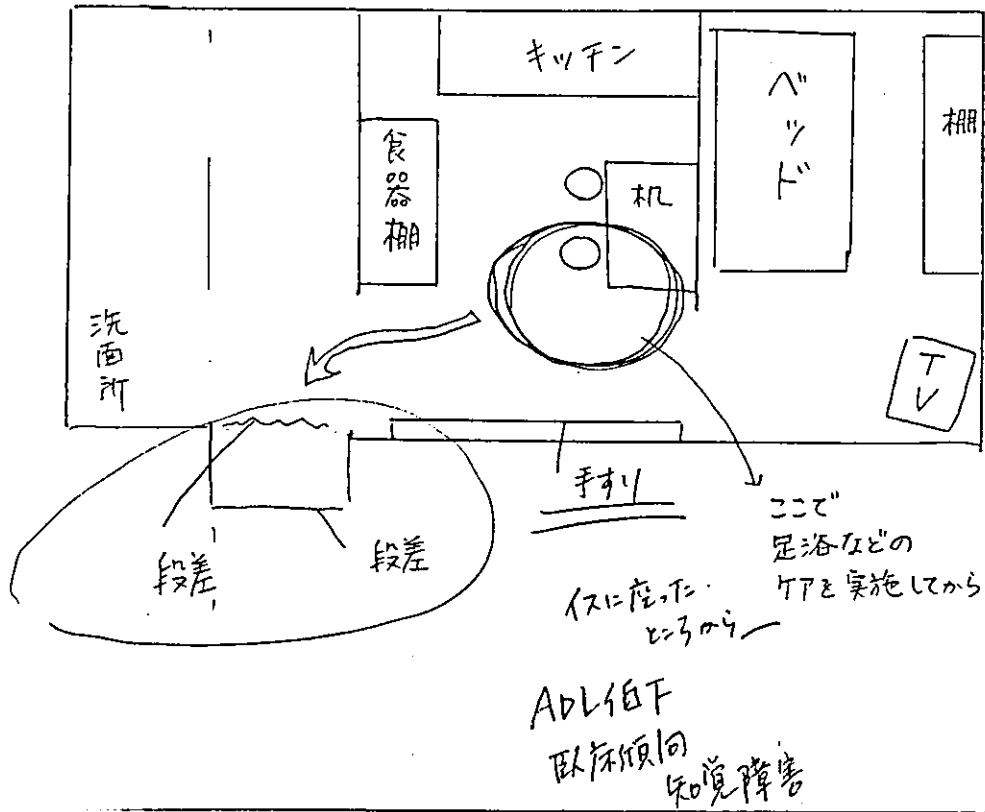 キッチン
ベッド
棚
食器棚
机
洗面所
TV
手すり
段差
段差
ここで
足浴などの
ケアを実施してから
イスに座った
ところから
ADL低下
臥床傾向
知覚障害